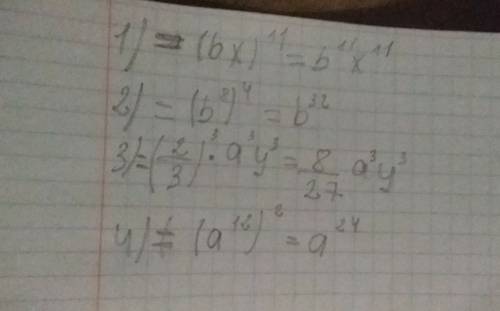 1) = (bx)¹¹ = b¹¹x¹¹
2) = (b⁸)⁴ = b³²
3) = (2/3)³ · a³y³ = 8/27 a³y³
4) = (a¹²)² = a²⁴